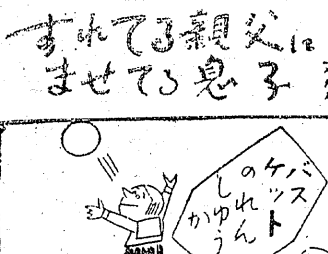 すれてる親父に
ませてる息子
バス
ケットの
れん
しゅう
か